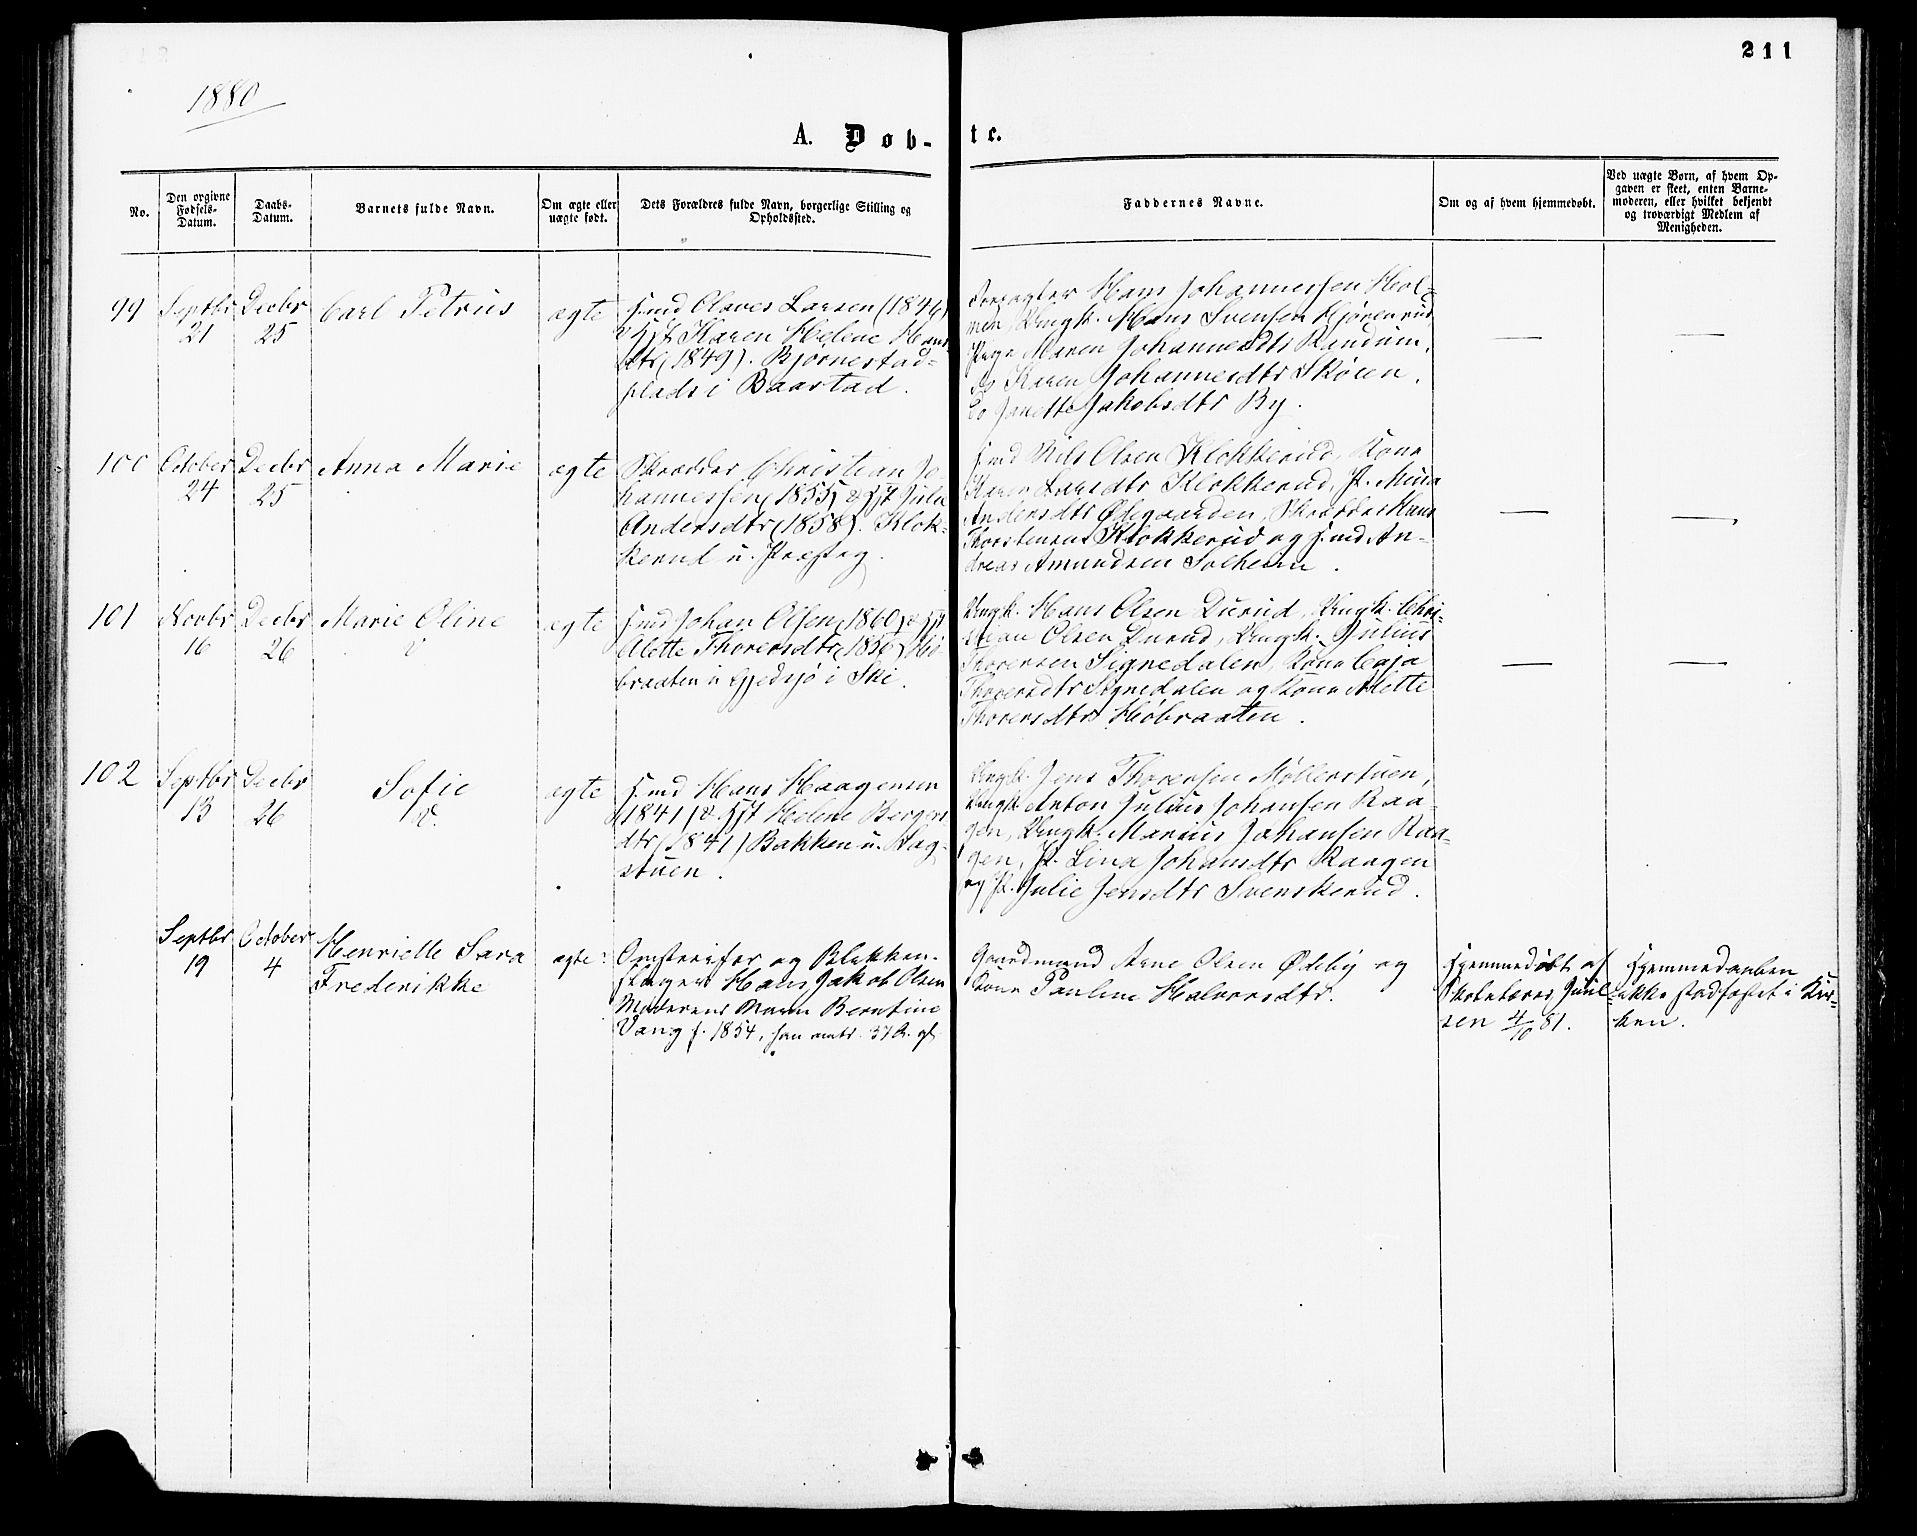 211
1880
A. Døb-
te.
No.
Den opgivne Fødsels-Datum.
Daabs-Datum.
Barnets fulde Navn.
Om ægte eller uægte født.
Dets Forældres fulde Navn, borgerlige Stilling og Opholdssted.
Faddernes Navne.
Om og af hvem hjemmedøbt.
Ved uægte Børn, af hvem Op-
gaven er skeet, enten Barne-
moderen, eller hvilket bekjendt
og troværdigt Medlem af
Menigheden.
99
Septbr
21
Decbr
25
Carl Petrus
ægte
Huusmd Olaves Larsen (1846)
& Hst Karen Helene Hans-
dtr (1849). Bjørnestad-
plads i Baastad.
Forpagter Hans Johannessen Hol-
men, Ungk. Hans Svensen
Pige Maren Johannesdtr Randum,
do Karen Johannesdtr Skøien,
do Janette Jakobsdtr By.
100
October
24
Decbr
25
Anna Marie
ægte
Skrædder Christian Jo-
hannessen (1855) & Hst Julie
Andersdtr (1858). Klok-
kerud u. Præsteg.
Nils Olsen Klokkerud, Kone
Karen Larsdtr Klokkerud, P. Mina
Andersdtr Ødegaarden, Skrædder Hans
Thorstensen Klokkerud og An-
dreas Amundsen Solheim.
101
Novbr
16
Decbr
26
Marie Oline
v
ægte
Johan Olsen (1860) & Hst
Alette Thorersdtr (1856) Hø-
braaten u Gjedsjø i Ski.
Ungk. Hans Olsen Durud, Ungk. Chri-
stian Olsen Durud, Ungk. Julius
Thorersen Signedalen, Kone Caja
Thorersdtr Signedalen og Kone Alette
Thorersdtr Høbraaten.
102
Septbr
13
Decbr
26
Sofie
v.
ægte
Hans Haagensen
(1841) & Hst Helene Bergers-
dtr (1841) Bakken u. Hag-
stuen.
Ungk. Jens Thorersen Møllerstuen,
Ungk. Anton Julius Johansen Raa-
gen, Ungk. Marius Johansen Raa-
gen, P. Lina Johansdtr Raagen
og P. Julie Jensdtr Svenskerud.
Septbr
19
October
4
Henriette Sara
Frederikke
ægte
Omstreifer og Blikken-
slager Hans Jakob Olsen
Moderens Navn Berntine
Vang f. 1854, han
Gaardmand Arne Olsen Ødeby og
Kone Pauline Halvorsdtr.
Hjemmedøbt af
Skolelærer Juul-
sen 4/10 81.
Hjemmedaaben
ikke stadfæstet i Kir-
ken.